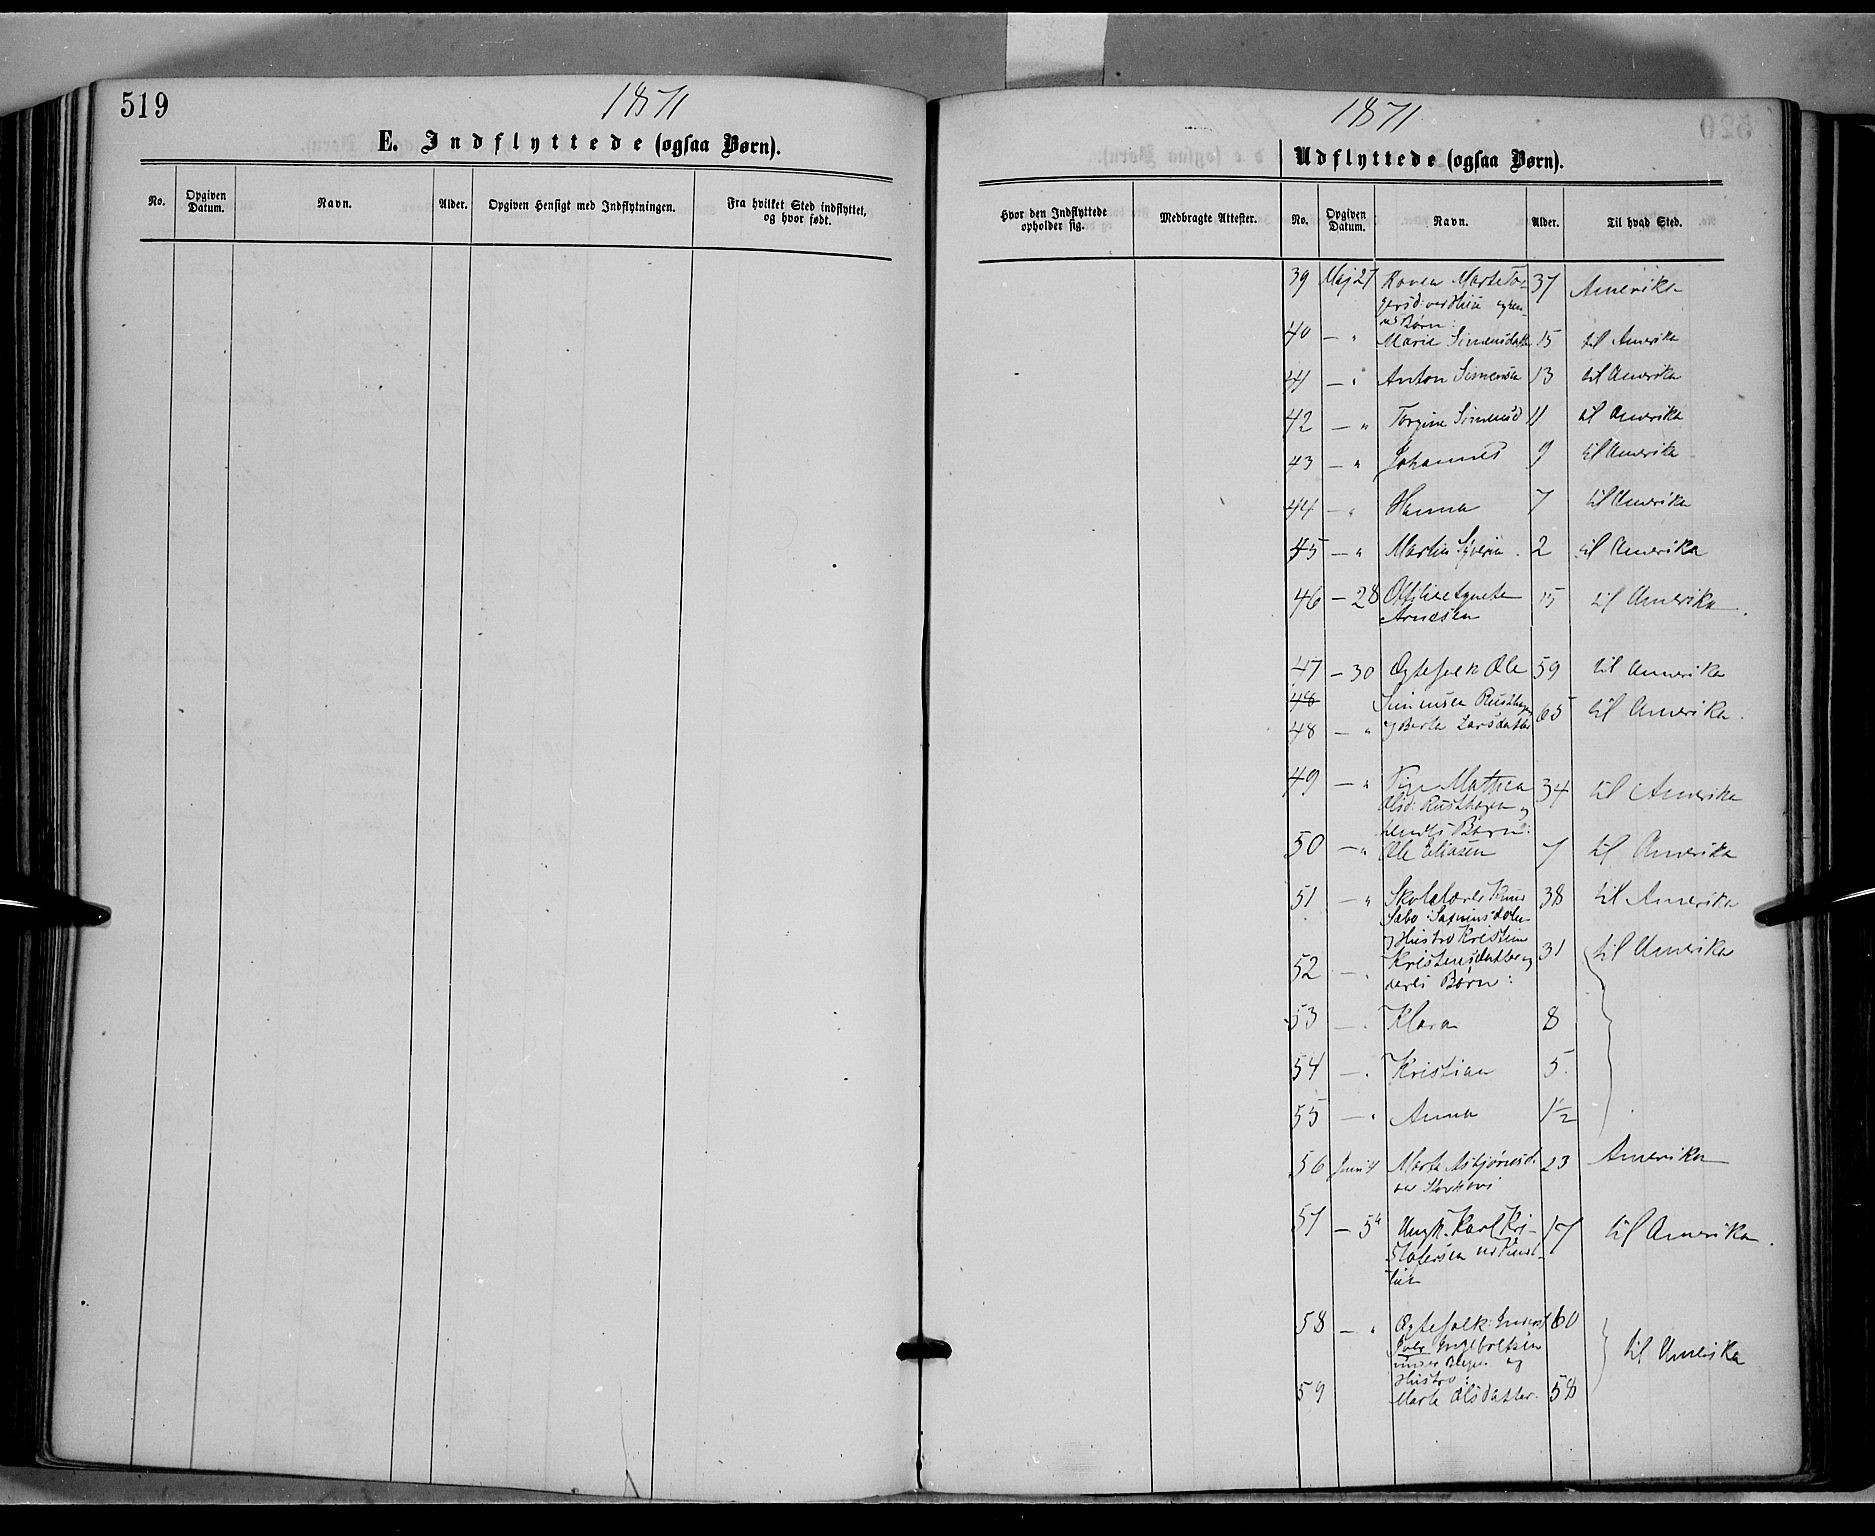 519
1871
E. Indflyttede (ogsaa Børn).
No. Opgiven Datum. Navn. Alder. Opgiven Hensigt med Indflytningen. Fra hvilket Sted indflyttet, og hvor født.
1871
Udflyttede (ogsaa Børn).
Hvor den Indflyttede opholder sig. Medbragte Attester. No. Opgiven Datum. Navn. Alder. Til hvad Sted.
39 Maj 27 Konen Marte 37 Amerika
Børn:
40 — " Marie Simensdatter 15 til Amerika
41 — " Anton Simensen 13 til Amerika
42 — " Torgine Simensd 11 til Amerika
43 — " Johannes 9 til Amerika
44 — " Hanna 7 til Amerika
45 — " Martin Syverin 2 til Amerika
46 — 28 15 til Amerika
Arnesen
47 — 30 Ægtefolk Ole 59 til Amerika
48
Simensen Rusthagen
48 — " og Berte Larsdatter 65 til Amerika.
49 — " Pige Mathea 34 til Amerika
Olsd: Rusthagen og
hendes Børn:
50 — " Ole Eliasen 7 til Amerika
51 — " Skolelærer 38 til Amerika
og Hustro Kristine
52 — " Kristensdatter og 31 til Amerika
deres Børn:
53 — " Klara 8
54 — " Kristian 5
55 — " Anna 1½
56 Juni 4 Marte Asbjørnsd. 23 Amerika
57 — 5 Ungk. Karl Kri- 17 til Amerika.
stofersen
58 — " Ægtefolk: 60 til Amerika
Iver Ingeboltsen
og
Hustro:
59 Marte Olsdatter. 58